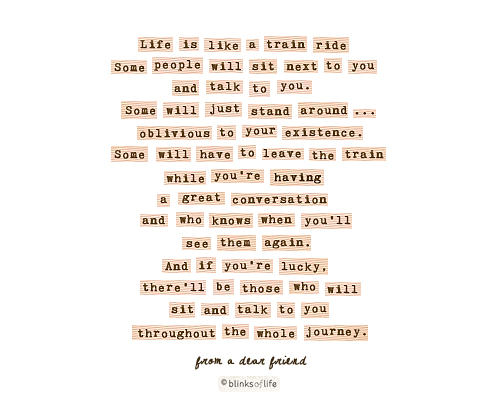 Life is like a train ride
Some people will sit next to you
and talk to you.
Some will just stand around ...
oblivious to your existence.
Some will have to leave the train
while you're having
a great conversation
and who knows when you'll
see them again.
And if you're lucky,
there'll be those who will
sit and talk to you
throughout the whole journey.
from a dear friend
© blinksoflife